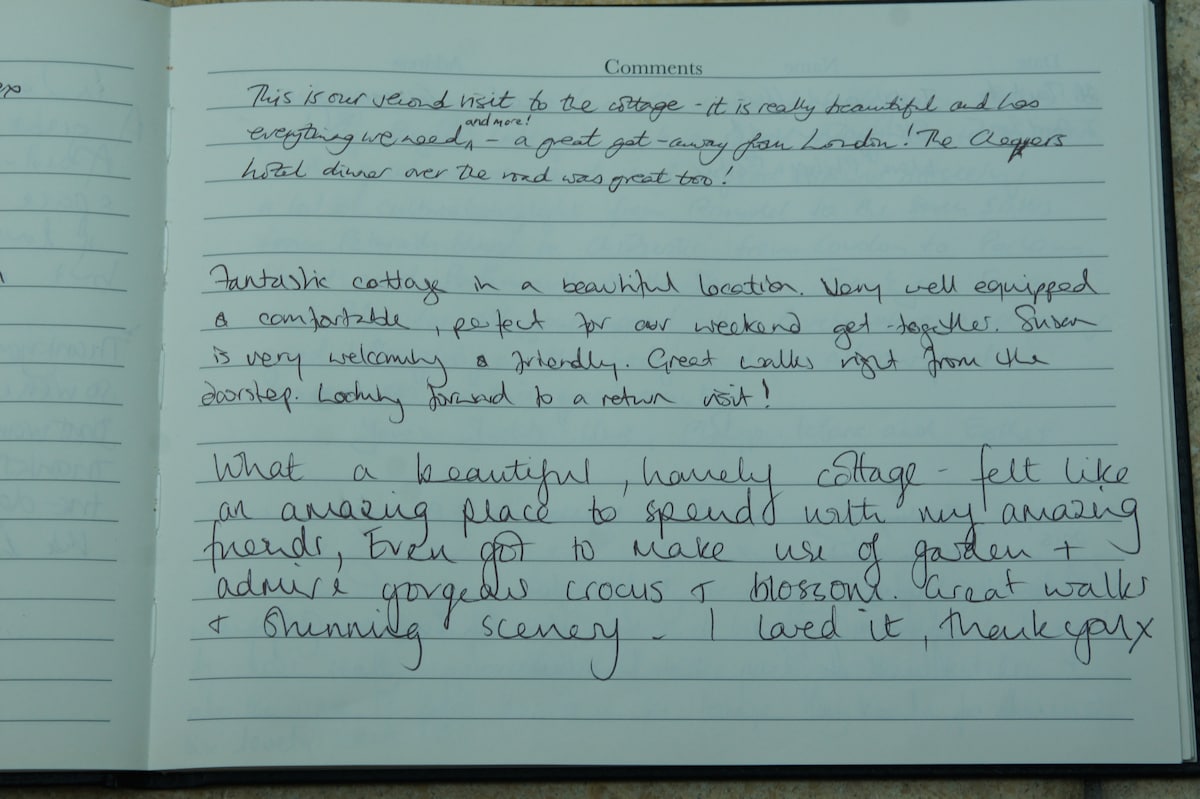 Comments
This is our second visit to the cottage - it is really beautiful and has
and more!
everything we need - a great get-away from London! The
hotel dinner over the road was great too!
Fantastic cottage in a beautiful location. Very well equipped
& comfortable, perfect for our weekend get-together. Susan
is very welcoming & friendly. Great walks right from the
doorstep. Looking forward to a return visit!
What a beautiful, homely cottage - felt like
an amazing place to spend with my amazing
friends, Even got to make use of garden +
admire gorgeous crocus + blossom. Great walks
+ Stunning scenery - I loved it, thank you x